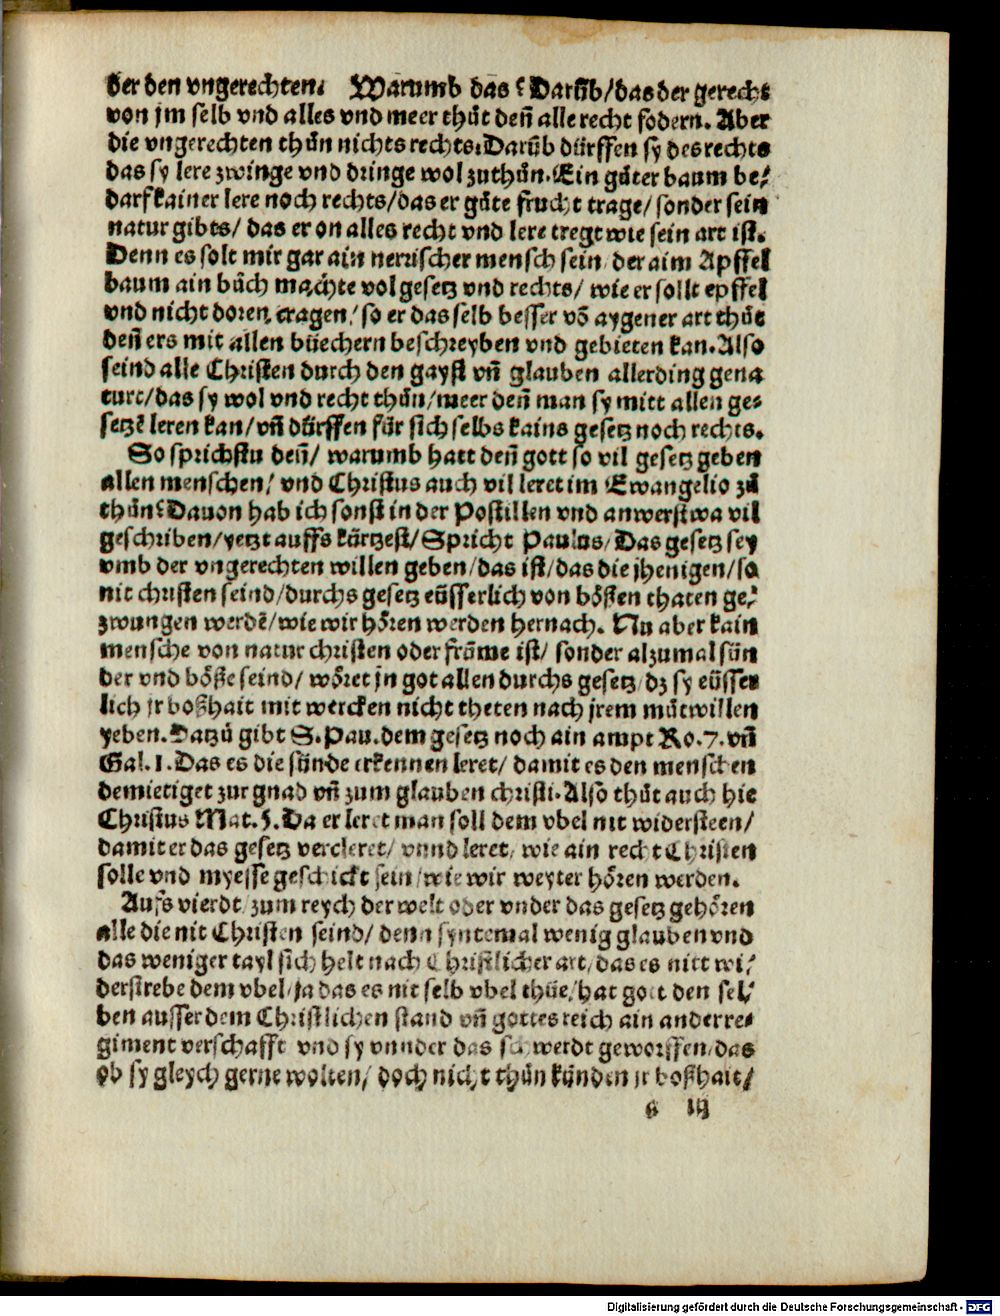 der den vngerechten. Warumb das? Darũb/das der gerecht
von jm selb vnd alles vnd meer thůt deñ alle recht fodern. Aber
die vngerechten thůn nichts rechts. Darũb dürffen sy des rechts
das sy lere zwinge vnd dringe wol zuthůn. Ein gůter baum be⸗
darf kainer lere noch rechts/das er gůte frucht trage/ sonder sein
natur gibts/ das er on alles recht vnd lere tregt wie sein art ist.
Denn es solt mir gar ain nerrischer mensch sein/ der aim Apffel
baum ain bůch machte vol gesetz vnd rechts/ wie er sollt epffel
vnd nicht doren tragen/ so er das selb besser võ aygener art thůt
deñ ers mit allen büechern beschreyben vnd gebieten kan. Also
seind alle Christen durch den gayst vñ glauben allerding gena
turt/das sy wol vnd recht thůn/meer deñ man sy mitt allen ge⸗
setzẽ leren kan/vñ dürffen für sich selbs kains gesetz noch rechts.
So sprichstu deñ/ warumb hatt deñ gott so vil gesetz geben
allen menschen/ vnd Christus auch vil leret im Ewangelio zů
thůn? Dauon hab ich sonst in der Postillen vnd anwerstwa vil
geschriben/yetzt auffs kürtzest/Spricht Paulus/Das gesetz sey
vmb der vngerechten willen geben/das ist/das die jhenigen/so
nit christen seind/durchs gesetz eüsserlich von bösten thaten ge⸗
zwungen werdẽ/wie wir hören werden hernach. Nu aber kain
mensche von natur christen oder frõme ist/ sonder alzumal sün
der vnd böße seind/ wöret jn got allen durchs gesetz/dz sy eüsser
lich jr boßhait mit wercken nicht theten nach jrem můtwillen
yeben. Datzů gibt S. Pau. dem gesetz noch ain ampt Ro. 7. vñ
Gal. 1. Das es die sünde erkennen leret/ damit es den menschen
demietiget zur gnad vñ zum glauben christi. Also thůt auch hie
Christus Mat. 5. Da er leret man soll dem vbel nit widersteen/
damit er das gesetz vercleret/ vnnd leret/ wie ain recht Christen
solle vnd myesse geschickt sein/wie wir weyter hören werden.
Aufs vierdt/zum reych der welt oder vnder das gesetz gehören
alle die nit Christen seind/ denn syntemal wenig glauben vnd
das weniger tayl sich helt nach Christlicher art/das es nitt wi⸗
derstrebe dem vbel/ja das es nit selb vbel thüe/hat gott den sel⸗
ben ausser dem Christlichen stand vñ gottes reich ain ander re⸗
giment verschafft vnd sy vnnder das schwerdt geworffen/das
ob sy gleych gerne wolten/ doch nicht thůn künden jr boßhait/
iij
Digitalisierung gefördert durch die Deutsche Forschungsgemeinschaft - DFG